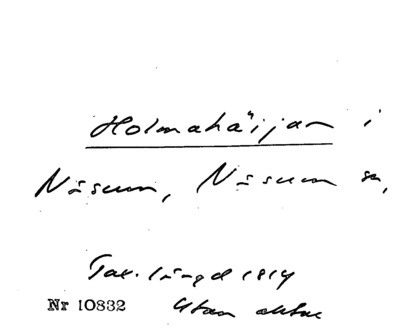 Holmahäijan i
Näsum, Näsum sn,
Tax. längd 1814
Nr 10832 Utan